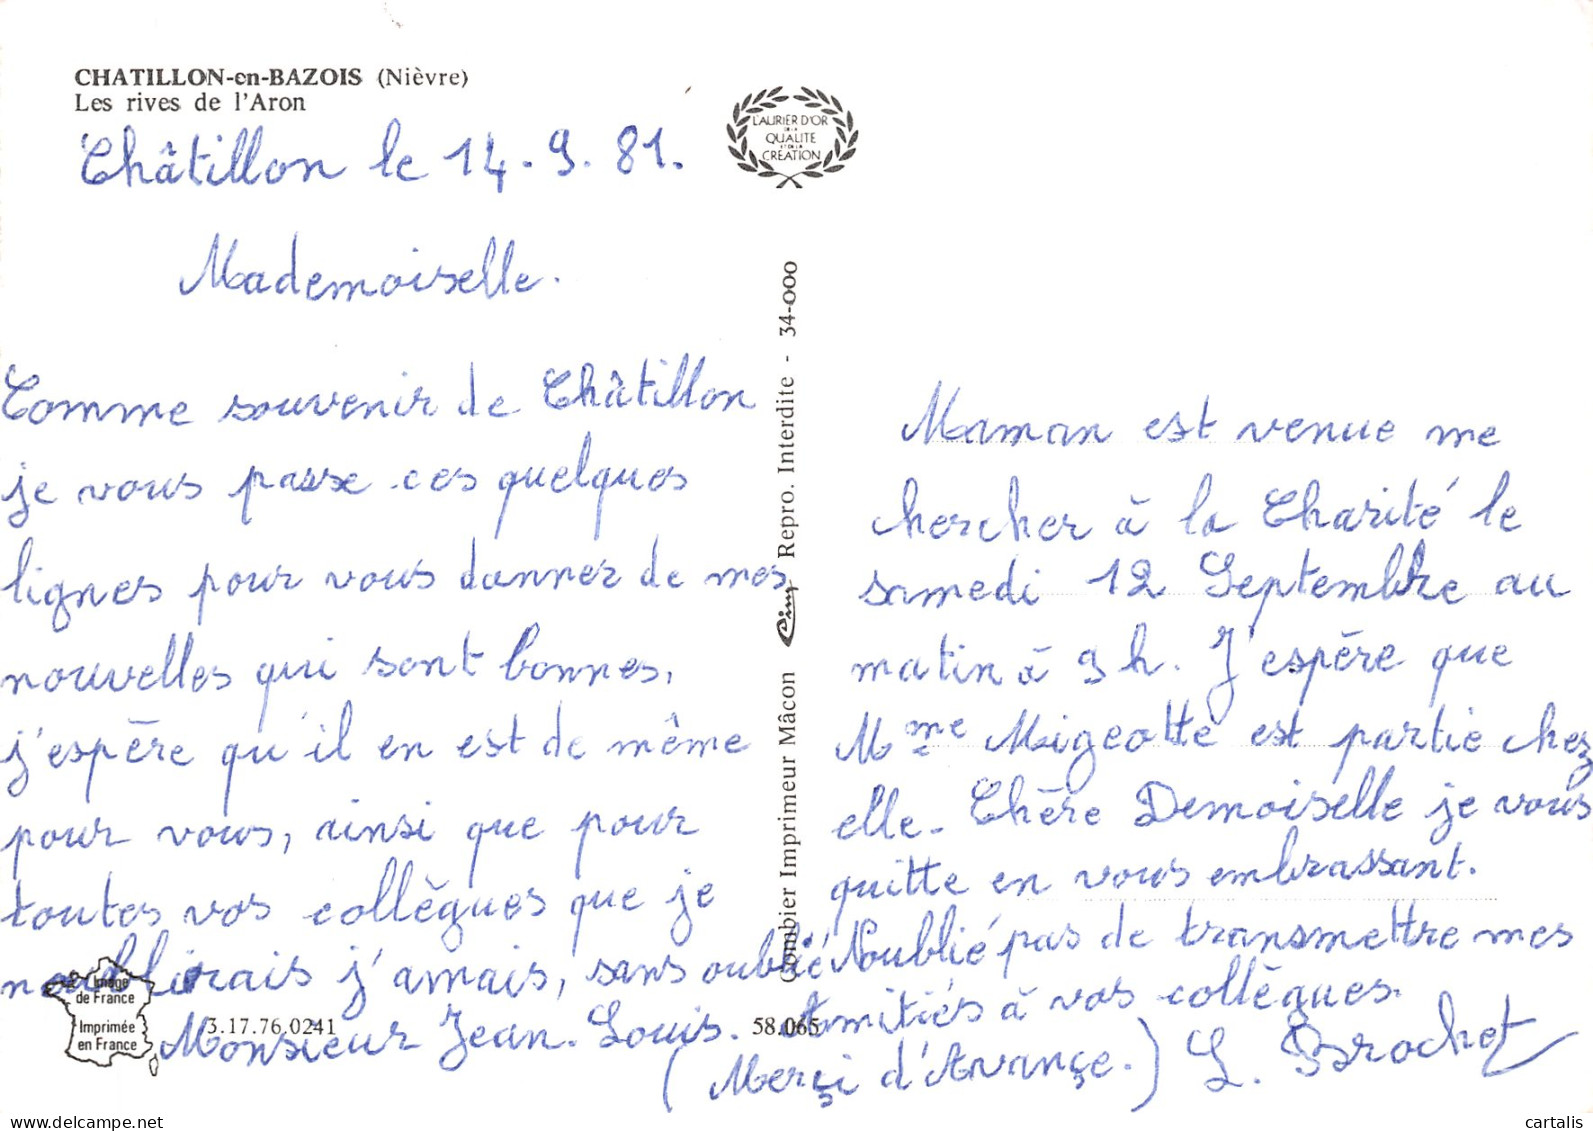 CHATILLON-en-BAZOIS (Nièvre)
Les rives de l'Aron
Châtillon le 14-9-81.
Mademoiselle.
Comme souvenir de Châtillon
je vous passe ces quelques
lignes pour vous donner de mes
nouvelles qui sont bonnes,
j'espère qu'il en est de même
pour vous, ainsi que pour
toutes vos collègues que je
n'oublirais j'amais, sans oublié
Monsieur Jean-Louis.
L'AURIER D'OR
DE LA
QUALITE
ET DE LA
CREATION
Combier Imprimeur Mâcon Cim Repro. Interdite - 34-000
Maman est venue me
chercher à la Charité le
samedi 12 Septembre au
matin à 9 h. J'espère que
Mme Migeotte est partie chez
elle. Chère Demoiselle je vous
quitte en vous embrassant.
Noublié pas de transmettre mes
Amitiés à vos collègues.
(Merçi d'Avançe.) L. Brochot
Image
de France
Imprimée
en France
3.17.76.0241
58.065
delcampe.net
cartalis